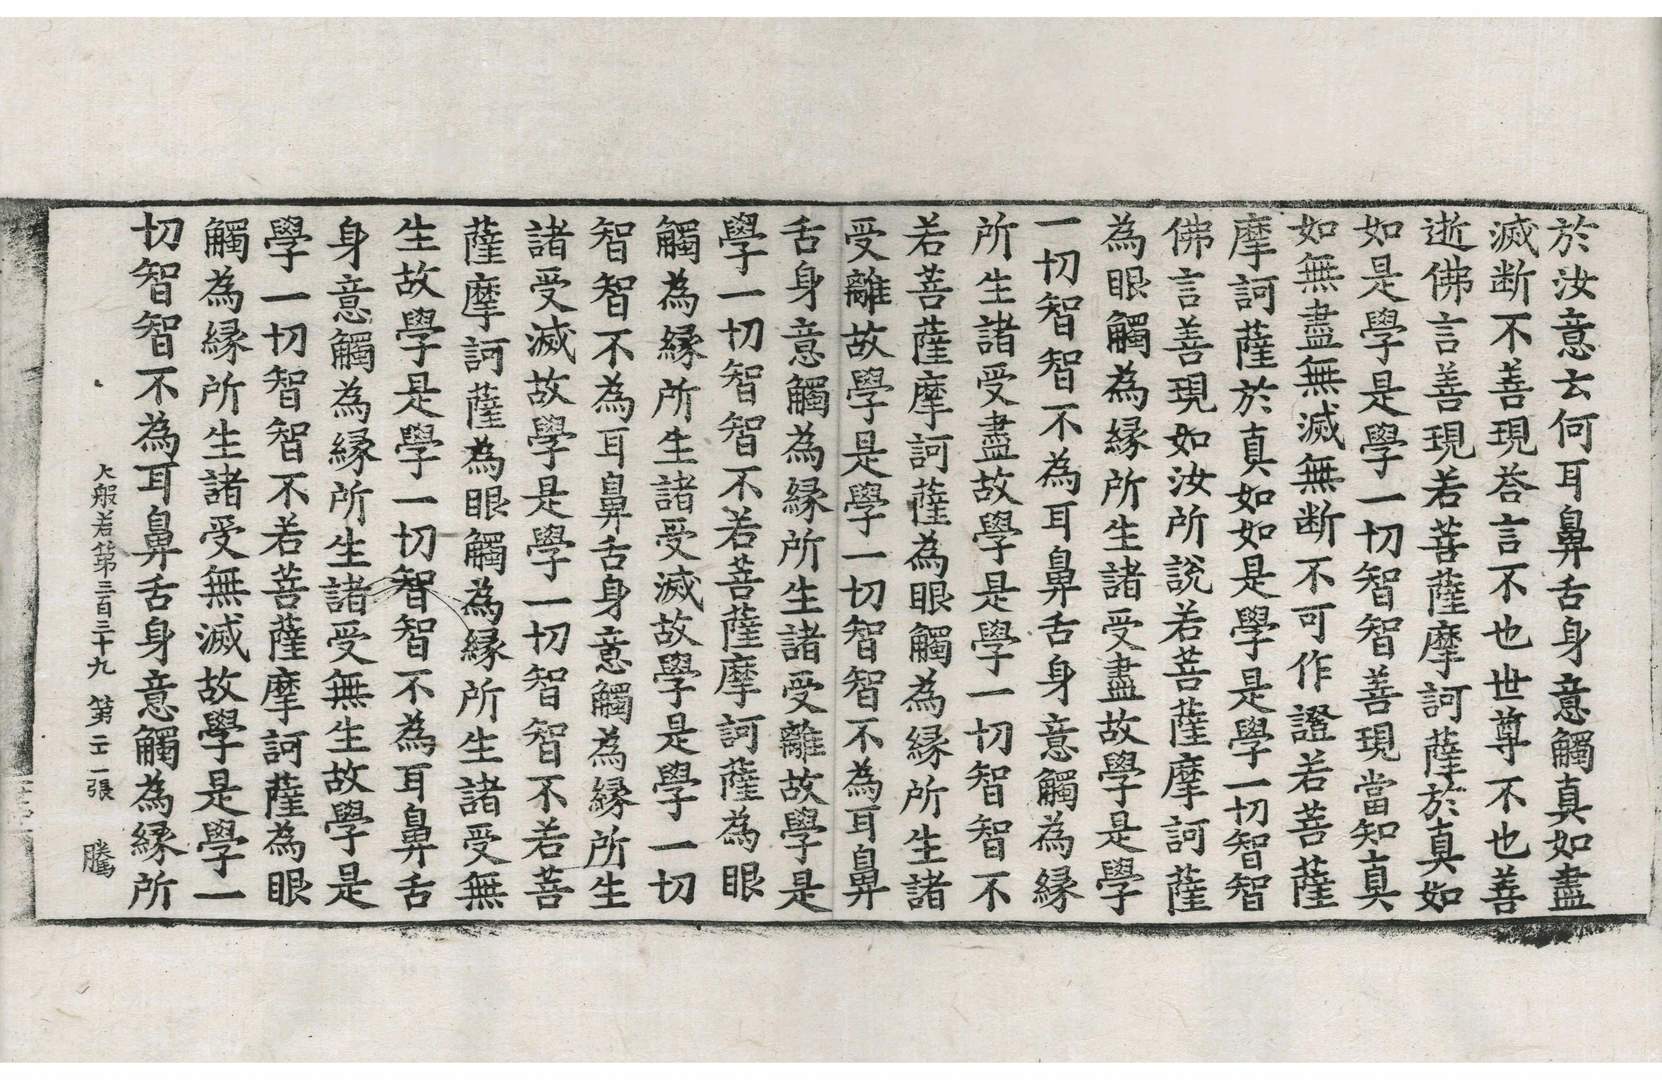 於汝意云何耳鼻舌身意觸真如盡
滅断不善現荅言不也世尊不也善
逝佛言善現若菩薩摩訶薩於真如
如是學是學一切智智善現當知真
如無盡無滅無断不可作證若菩薩
摩訶薩於真如如是學是學一切智智
佛言善現如汝所說若菩薩摩訶薩
為眼觸為縁所生諸受盡故學是學
一切智智不為耳鼻舌身意觸為縁
所生諸受盡故學是學一切智智不
若菩薩摩訶薩為眼觸為縁所生諸
受離故學是學一切智智不為耳鼻
舌身意觸為縁所生諸受離故學是
學一切智智不若菩薩摩訶薩為眼
觸為縁所生諸受滅故學是學一切
智智不為耳鼻舌身意觸為縁所生
諸受滅故學是學一切智智不若菩
薩摩訶薩為眼觸為縁所生諸受無
生故學是學一切智智不為耳鼻舌
身意觸為縁所生諸受無生故學是
學一切智智不若菩薩摩訶薩為眼
觸為縁所生諸受無滅故學是學一
切智智不為耳鼻舌身意觸為縁所
大般若第三百三十九 第二十一張 騰